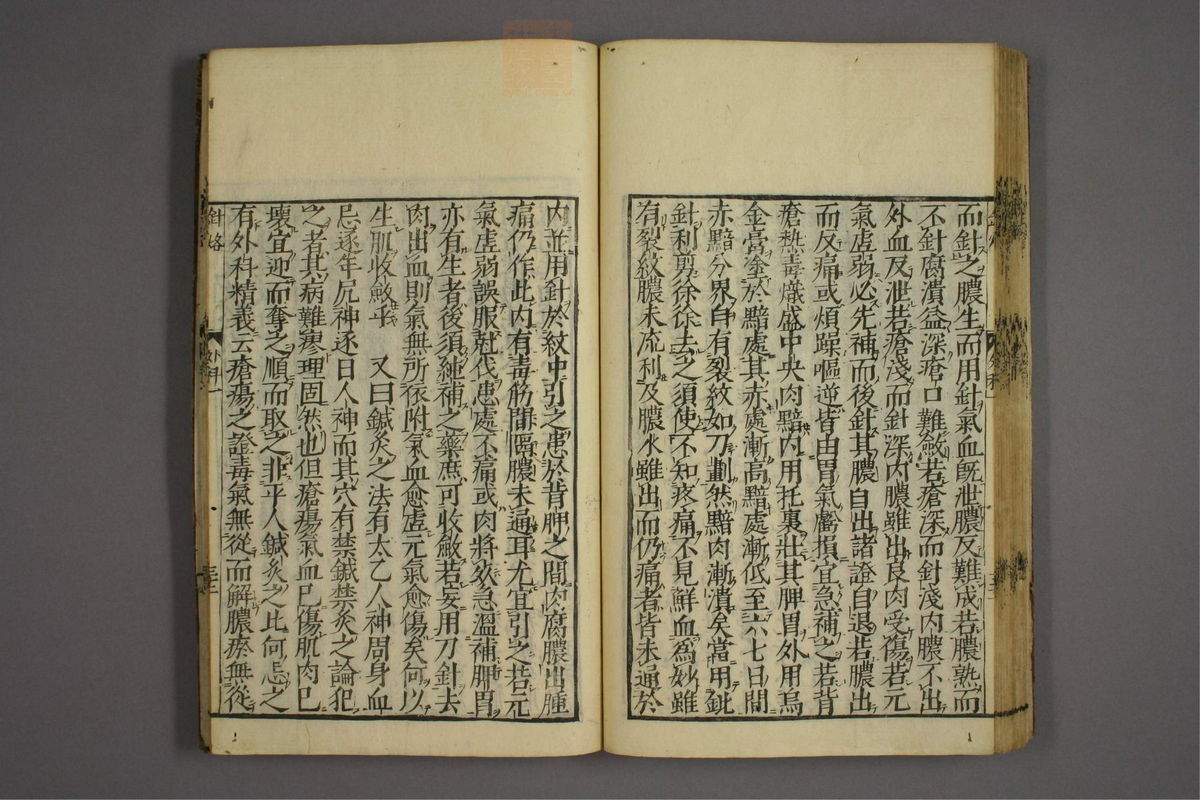 而針之膿生而用針氣血既泄膿反難成若膿熟而
不針腐潰益深瘡口難斂若瘡深而針淺内膿不出
外血反泄若瘡淺而針深内膿雖出良肉受傷若元
氣虚弱必先補而後針其膿自出諸證自退若膿出
而反痛或煩躁嘔逆皆由胃氣虧損宜急補之若背
瘡熱毒熾盛中央肉黯内用托裏壯其脾胃外用烏
金膏塗於黯處其赤處漸高黯處漸低至六七日間
赤黯分界自有裂紋如刀劃然黯肉漸潰矣當用鈚
針利剪徐徐去之須使不知疼痛不見鮮血為妙雖
有裂紋膿未流利及膿水雖出而仍痛者皆未通於
内並用針於紋中引之患於背胛之間肉腐膿出腫
痛仍作此内有毒筋間隔膿未通耳尤宜引之若元
氣虚弱誤服尅伐患處不痛或肉將死急溫補脾胃
亦有生者後須純補之藥庶可收斂若妄用刀針去
肉出血則氣無所依附氣血愈虚元氣愈傷矣何以
生肌收斂乎 又曰鍼灸之法有太乙人神周身血
忌逐年尻神逐日人神而其穴有禁鍼禁灸之論犯
之者其病難瘳理固然也但瘡瘍氣血已傷肌肉已
壞宜迎而奪之順而取之非平人鍼灸之比何忌之
有外科精義云瘡瘍之證毒氣無從而解膿瘀無從
針烙
外科一